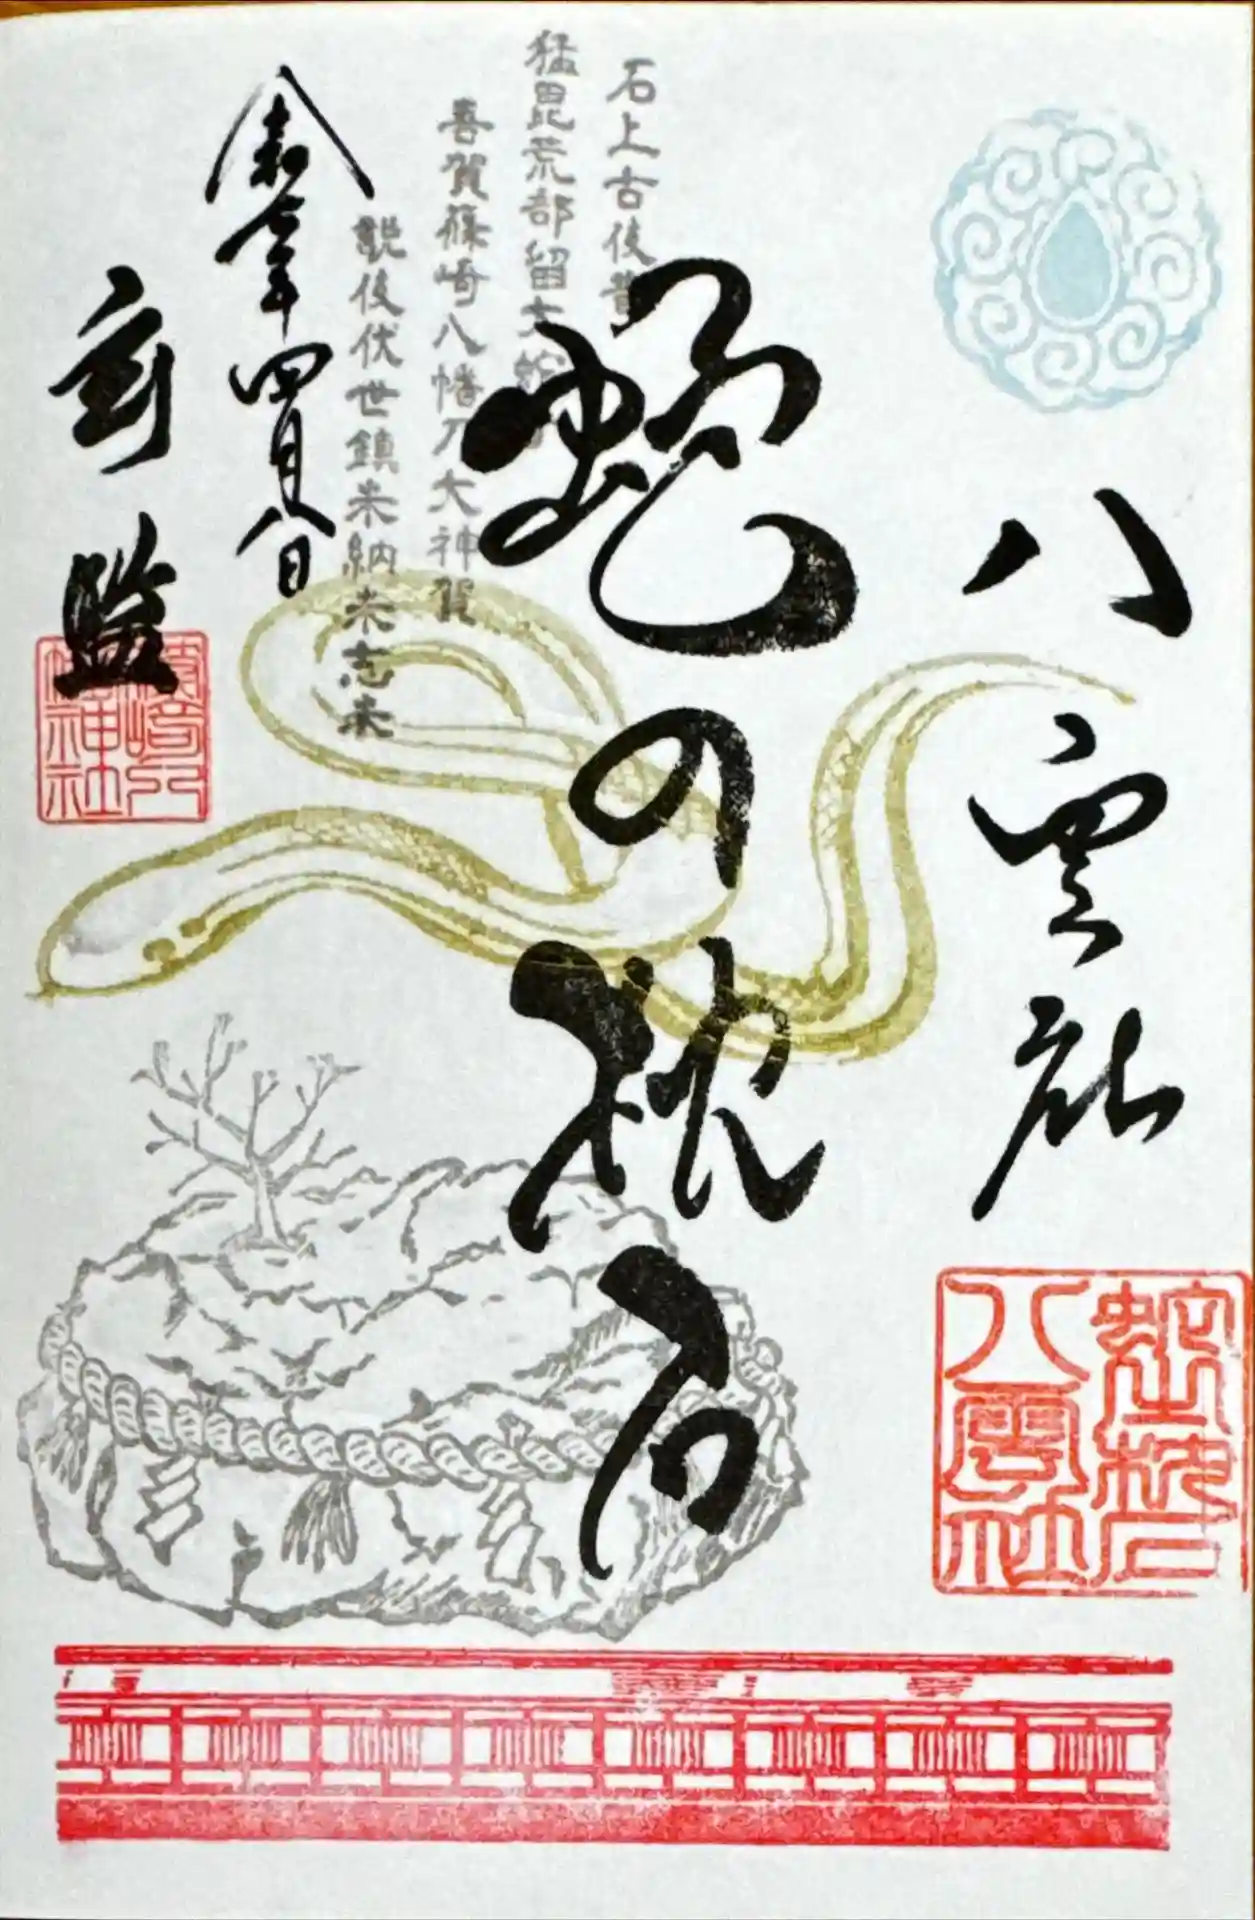 八雲社
蛇枕石
八雲社
蛇の枕石
石上古伎昔
猛毘荒部留大蛇
喜賀篠崎八幡乃大神賀
説伎伏世鎮米納米志米
令和七年四月八日
篠崎八幡神社